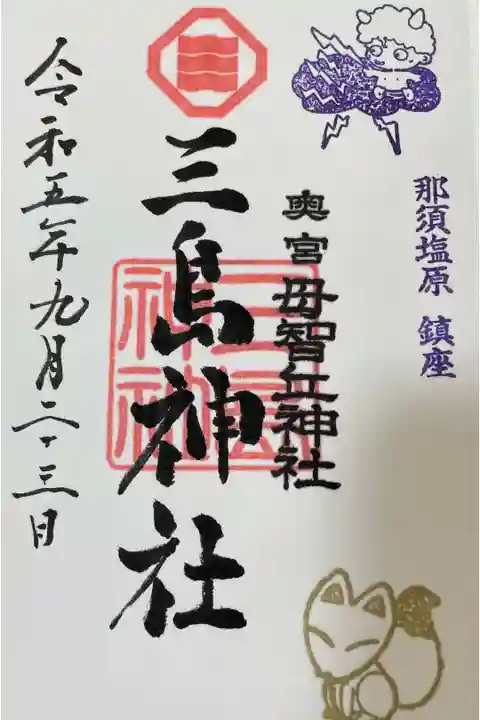 那須塩原 鎮座
奥宮 母智丘神社
三島神社
三島
神社
令和五年九月二十三日